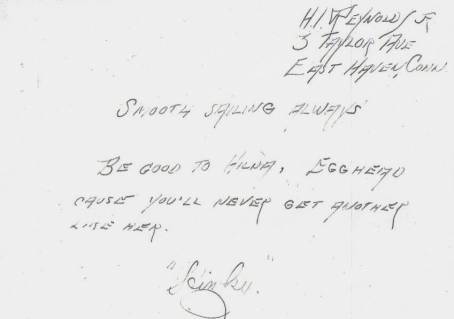 H.I. REYNOLDS JR
3 TAYLOR AVE
EAST HAVEN, CONN
SMOOTH SAILING ALWAYS
BE GOOD TO HILMA, EGGHEAD
CAUSE YOU'LL NEVER GET ANOTHER
LIKE HER.